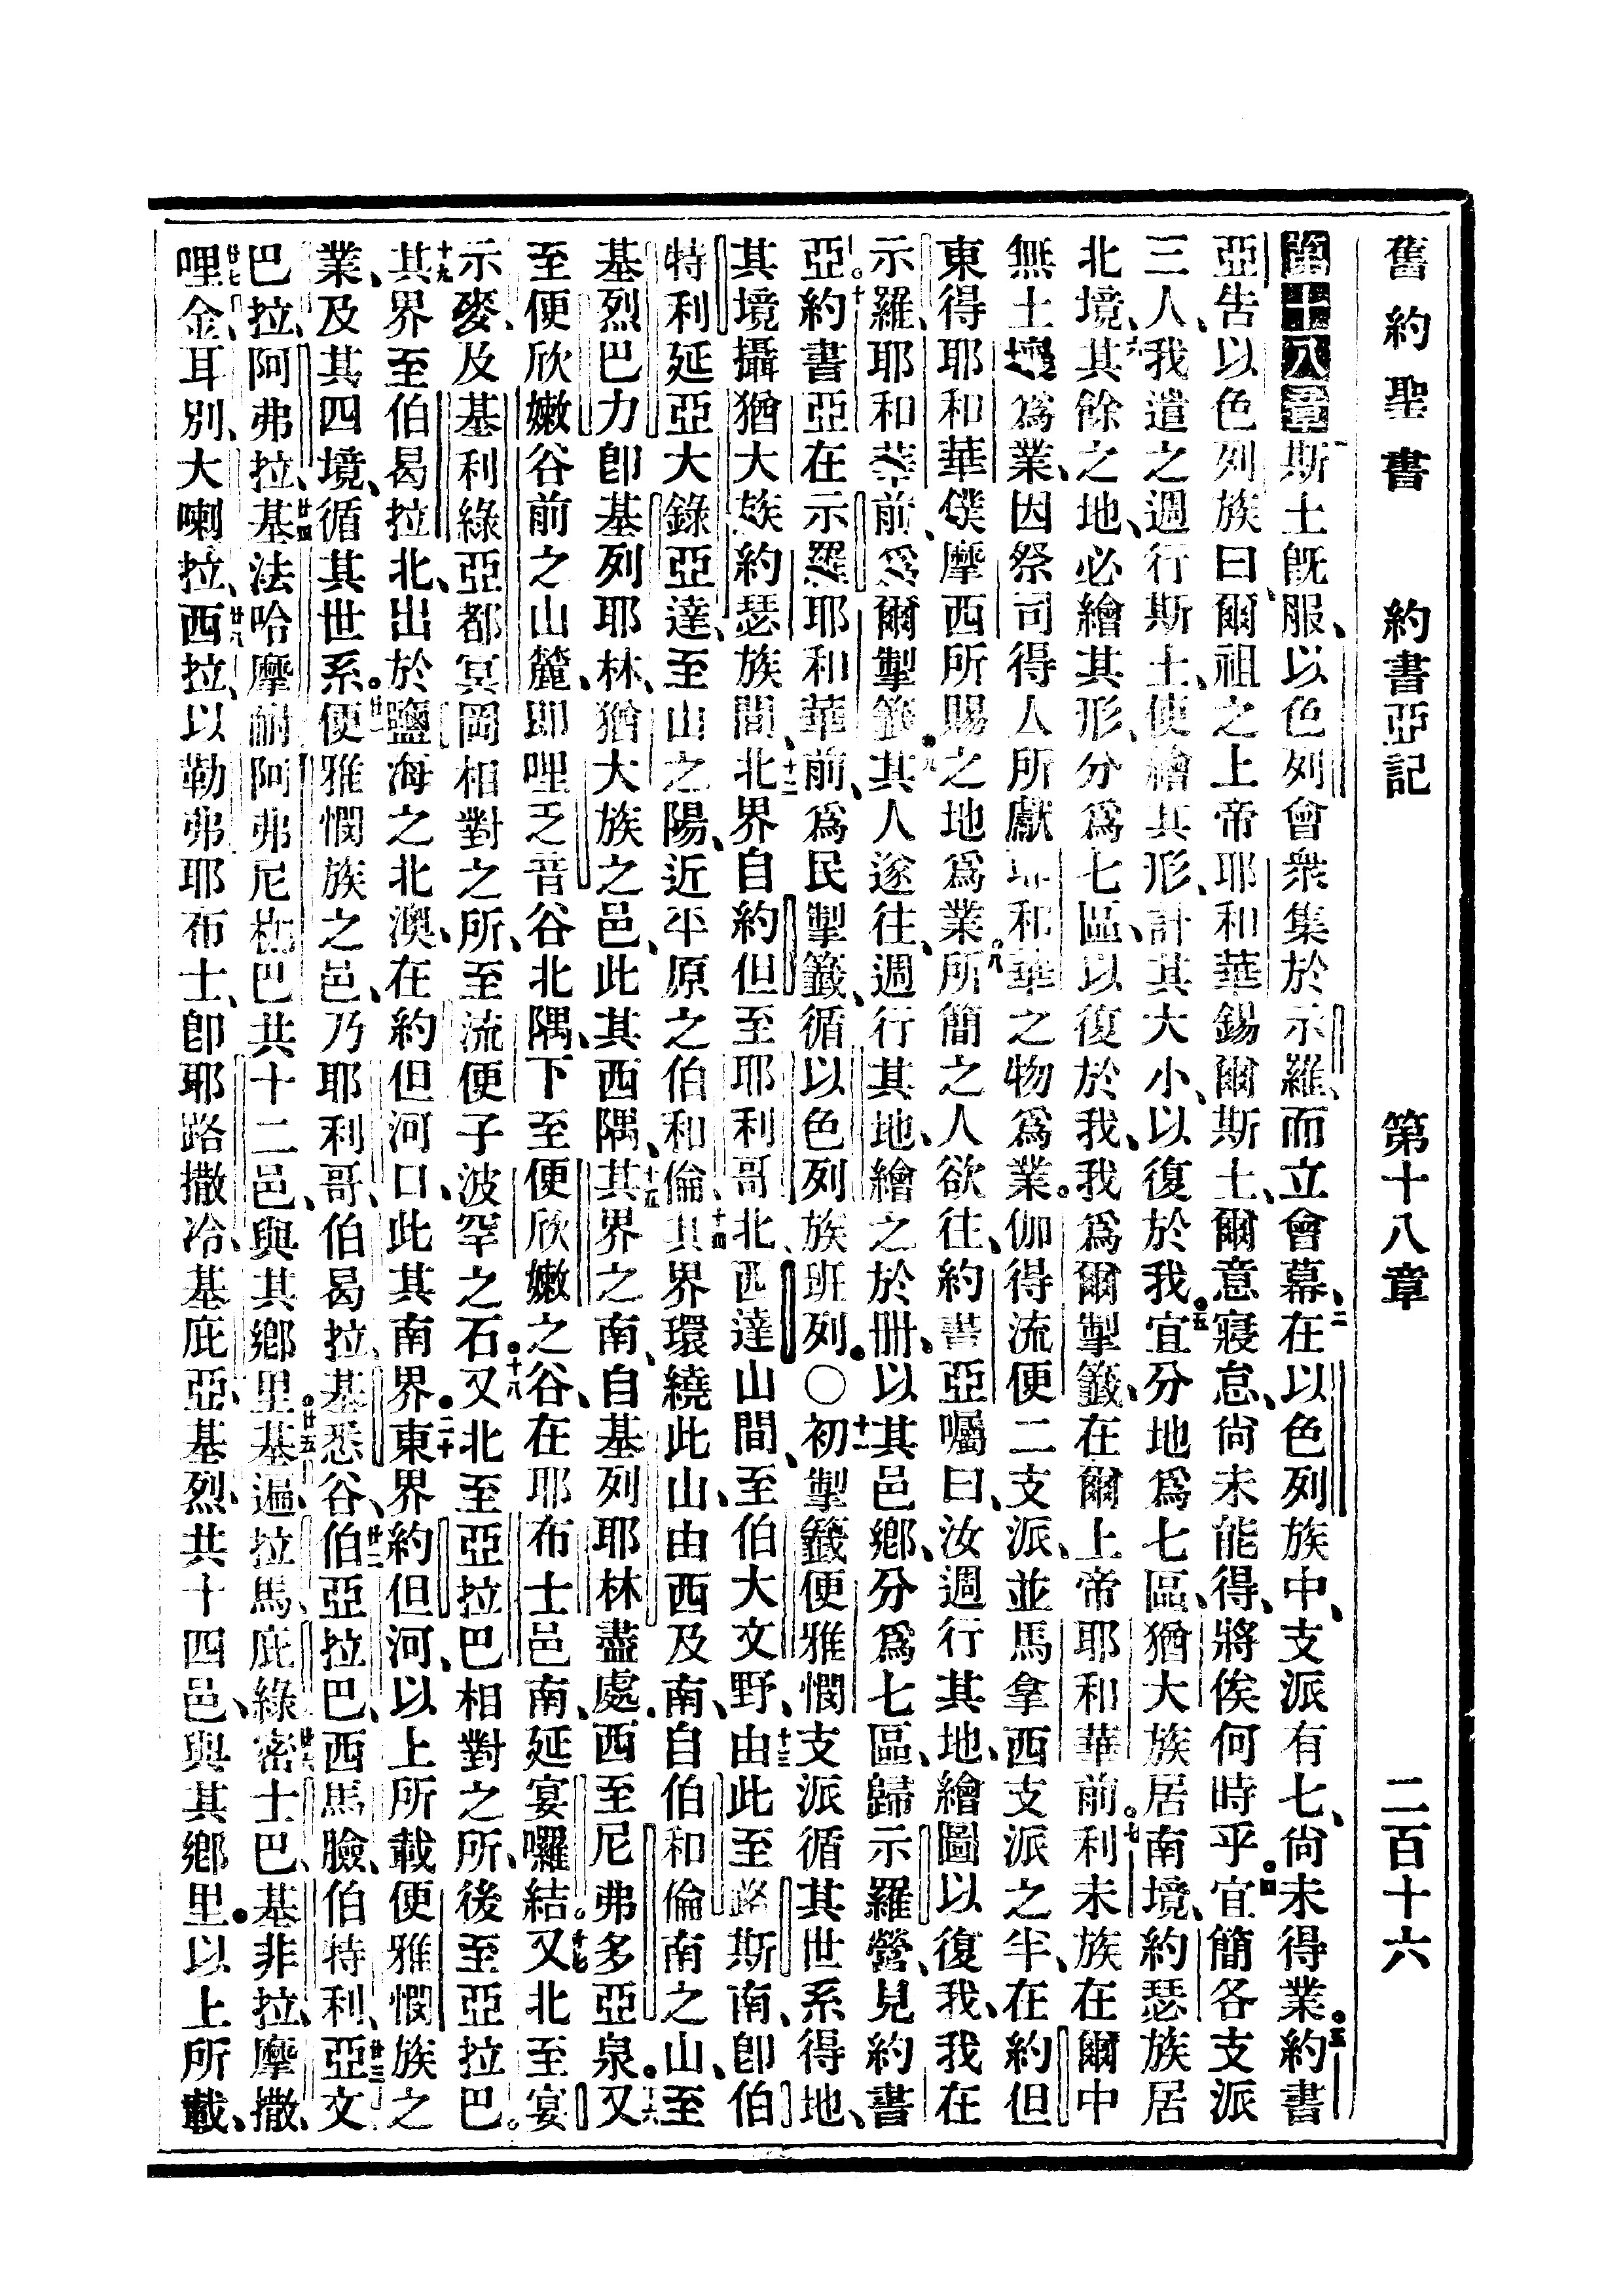 舊約聖書 約書亞記 第十八章 二百十六
第十八章 一斯土旣服、以色列會衆集於示羅、而立會幕、二在以色列族中、支派有七、尙未得業。三約書
亞告以色列族曰、爾祖之上帝耶和華錫爾斯土、爾意寢怠、尙未能得、將俟何時乎。四宜簡各支派
三人、我遣之週行斯土、使繪其形、計其大小、以復於我。五宜分地爲七區、猶大族居南境、約瑟族居
北境、六其餘之地、必繪其形、分爲七區、以復於我、我爲爾掣籤、在爾上帝耶和華前。七利未族在爾中
無土壤爲業、因祭司得人所獻耶和華之物爲業。伽得流便二支派、並馬拿西支派之半、在約但
東得耶和華僕、摩西所賜之地爲業。八所簡之人欲往、約書亞囑曰、汝週行其地、繪圖以復我、我在
示羅、耶和華前、爲爾掣籤。九其人遂往、週行其地、繪之於冊、以其邑鄉、分爲七區、歸示羅營、見約書
亞。十約書亞在示羅耶和華前、爲民掣籤、循以色列族班列。〇十一初掣籤、便雅憫支派、循其世系得地、
其境攝猶大族約瑟族間、十二北界自約但至耶利哥北、匝達山間、至伯大文野、十三由此至路斯南、卽伯
特利、延亞大錄亞達、至山之陽、近平原之伯和倫、十四其界環繞此山、由西及南、自伯和倫南之山、至
基烈巴力卽基列耶林、猶大族之邑、此其西隅、十五其界之南、自基列耶林盡處、西至尼弗多亞泉。十六又
至便欣嫩谷前之山麓、卽哩乏音谷北隅、下至便欣嫩之谷、在耶布士邑南、延宴囉結。十七又北至宴
示麥、及基利綠、亞都冥岡相對之所、至流便子波罕之石。十八又北至亞拉巴相對之所、後至亞拉巴。
十九其界至伯曷拉北、出於鹽海之北澳、在約但河口、此其南界。二十東界約但河、以上所載便雅憫族之
業、及其四境、循其世系。廿一便雅憫族之邑、乃耶利哥、伯曷拉、基悉谷、廿二伯亞拉巴、西馬臉、伯特利、廿三亞文
巴拉、阿弗拉、廿四基法哈摩耐、阿弗尼、柂巴、共十二邑、與其鄉里。廿五基遍、拉馬、庇綠、廿六密士巴、基非拉、摩撒、
廿七哩金、耳別、大喇拉、廿八西拉、以勒弗、耶布士、卽耶路撒冷、基庇亞、基烈、共十四邑、與其鄉里。以上所載、